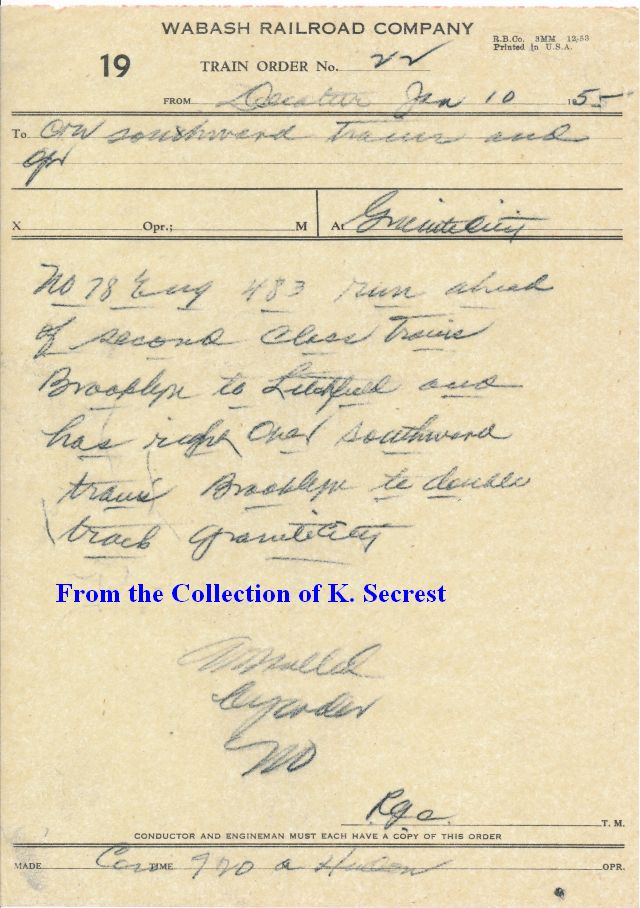 WABASH RAILROAD COMPANY
R.B.Co. 3MM 12-53
Printed in U.S.A.
19
TRAIN ORDER No. 22
FROM Decatur Jan 10 1955
To C&E southward trains and
opr
X Opr.; M At Granite City
No 78 Eng 483 run ahead
of second class trains
Brooklyn to Litchfield and
has right over southward
trains Brooklyn to double
track Granite City
From the Collection of K. Secrest
No
RGC
T. M.
CONDUCTOR AND ENGINEMAN MUST EACH HAVE A COPY OF THIS ORDER
MADE Com TIME 920 a OPR.